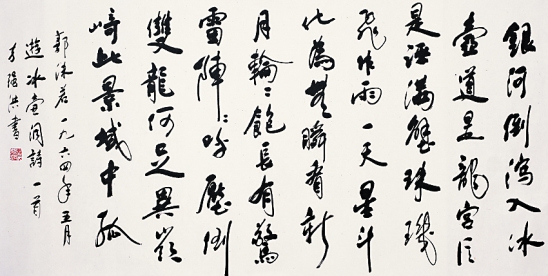 銀河倒瀉入冰
壺道是龍宮信
是誣滿壁珠璣
飛作雨一天星斗
化為無瞬看新
月輪々飽長有驚
雷陣々呼壓倒
雙龍何足異嶔
崎此景域中孤
郭沫若一九六四年五月
遊冰壺洞詩一首
洪書